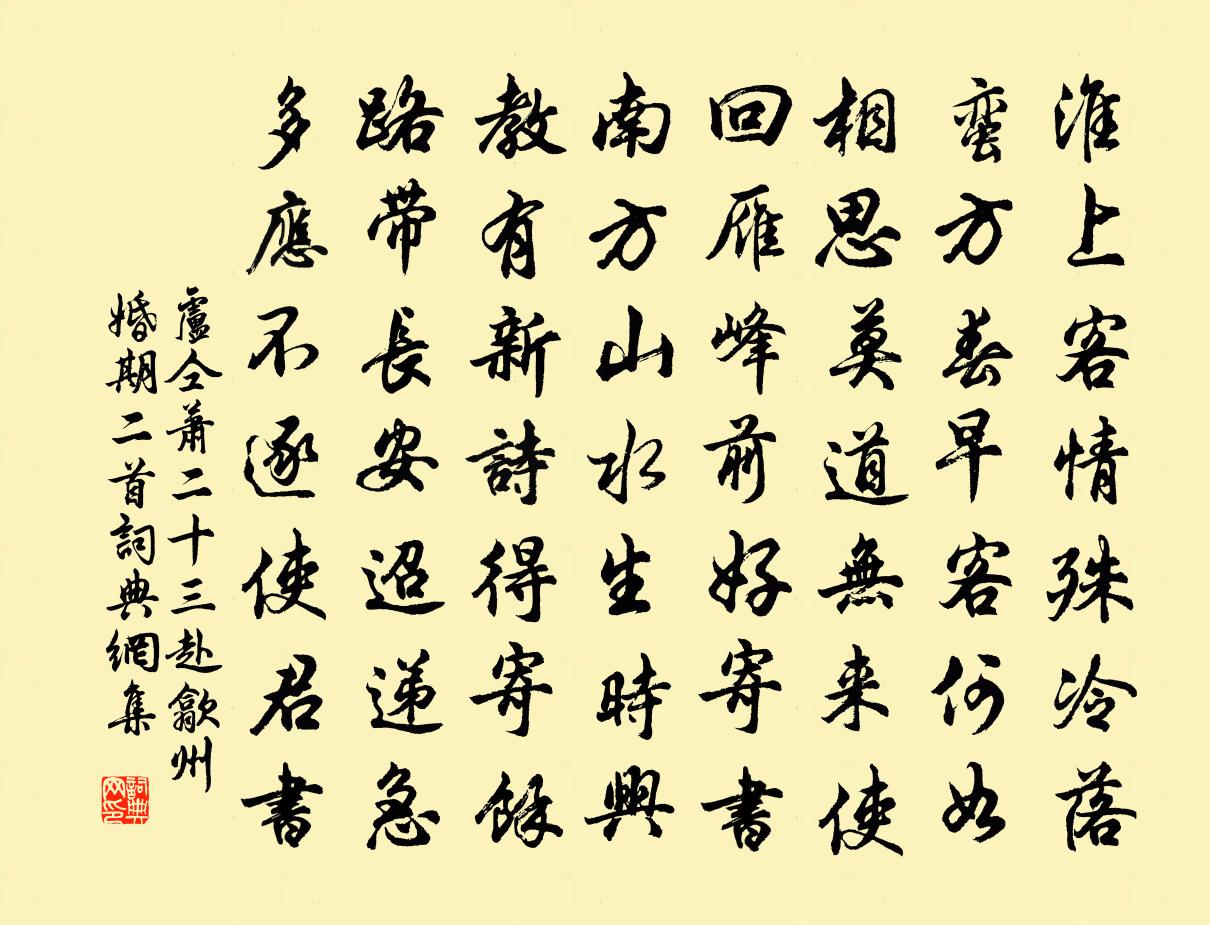 淮上客情殊冷落
蛮方春早客何如
相思莫道無来使
回雁峰前好寄書
南方山水生時興
教有新詩得寄餘
路帯長安迢遞急
多應不逐使君書
盧仝蕭二十三赴歙州
婚期二首詞典網集
詞典
网印